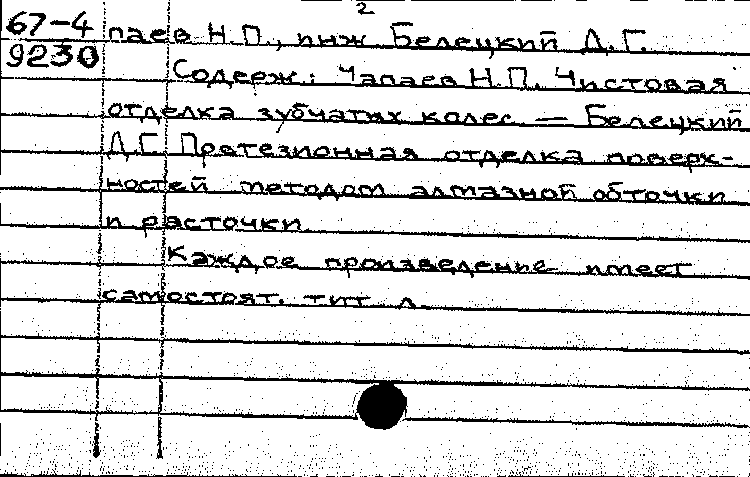 2
67-4 паев Н.П., инж Белецкий Д.Г.
9230
Содерж.: Чапаев Н.П. Чистовая
отделка зубчатых колес. — Белецкий
Д.Г. Претезионная отделка поверх-
ностей методом алмазной обточки
и расточки
Каждое произведение имеет
самостоят. тит. л.